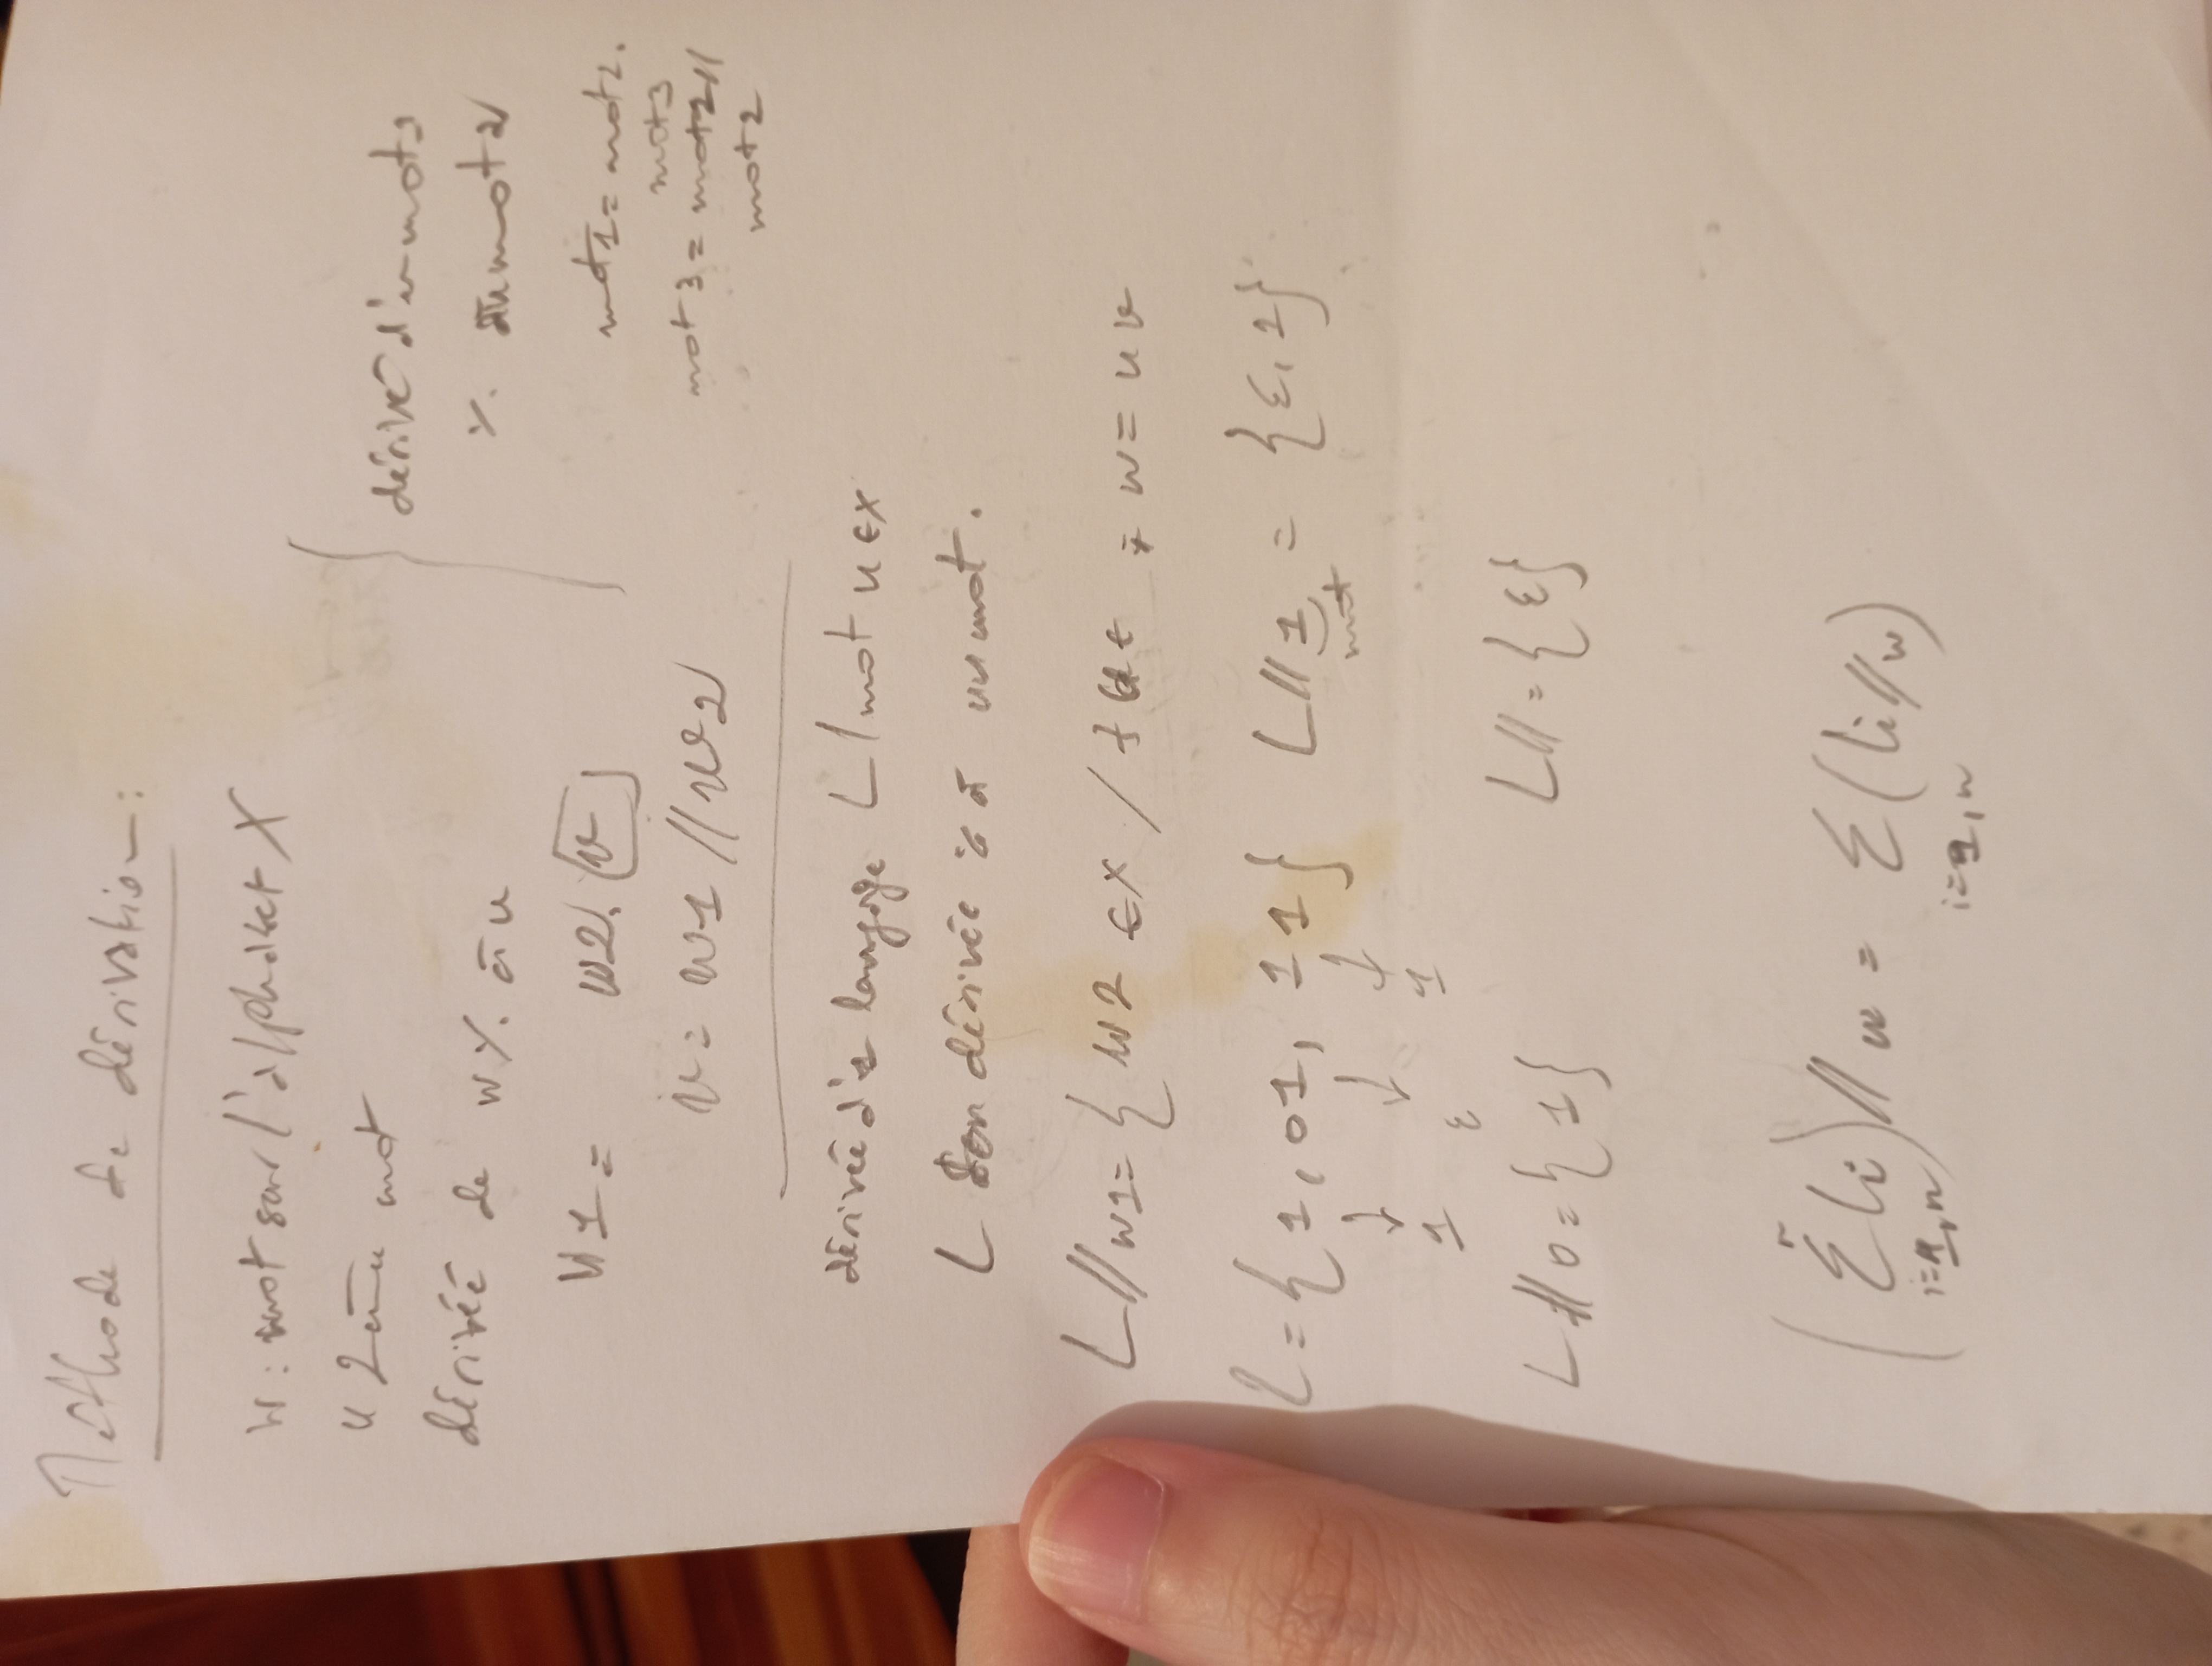 Méthode de dérivation :
w : mot sur l'alphabet X
u 2ème mot
dérivéé de w %. à u
w1 = w2. v
v = w1 // w2
dérivé d'un mot1
%. à un mot2
mot1 = mot2.
mot3
mot3 = mot1 //
mot2
dérivée d'1 langage L / mot u ∈ X
L son dérivée % à un mot.
L // w1 = { w2 ∈ X / ∃ ; w = u v
L = { 1, 01, 11 } L // 1 = { ε, 1 }
mot
↓ ↓ ↓
1 ε 1
L // 0 = { 1 } L // = { ε }
( Σ Li ) // w = Σ ( Li // w )
i=1,n i=1,n